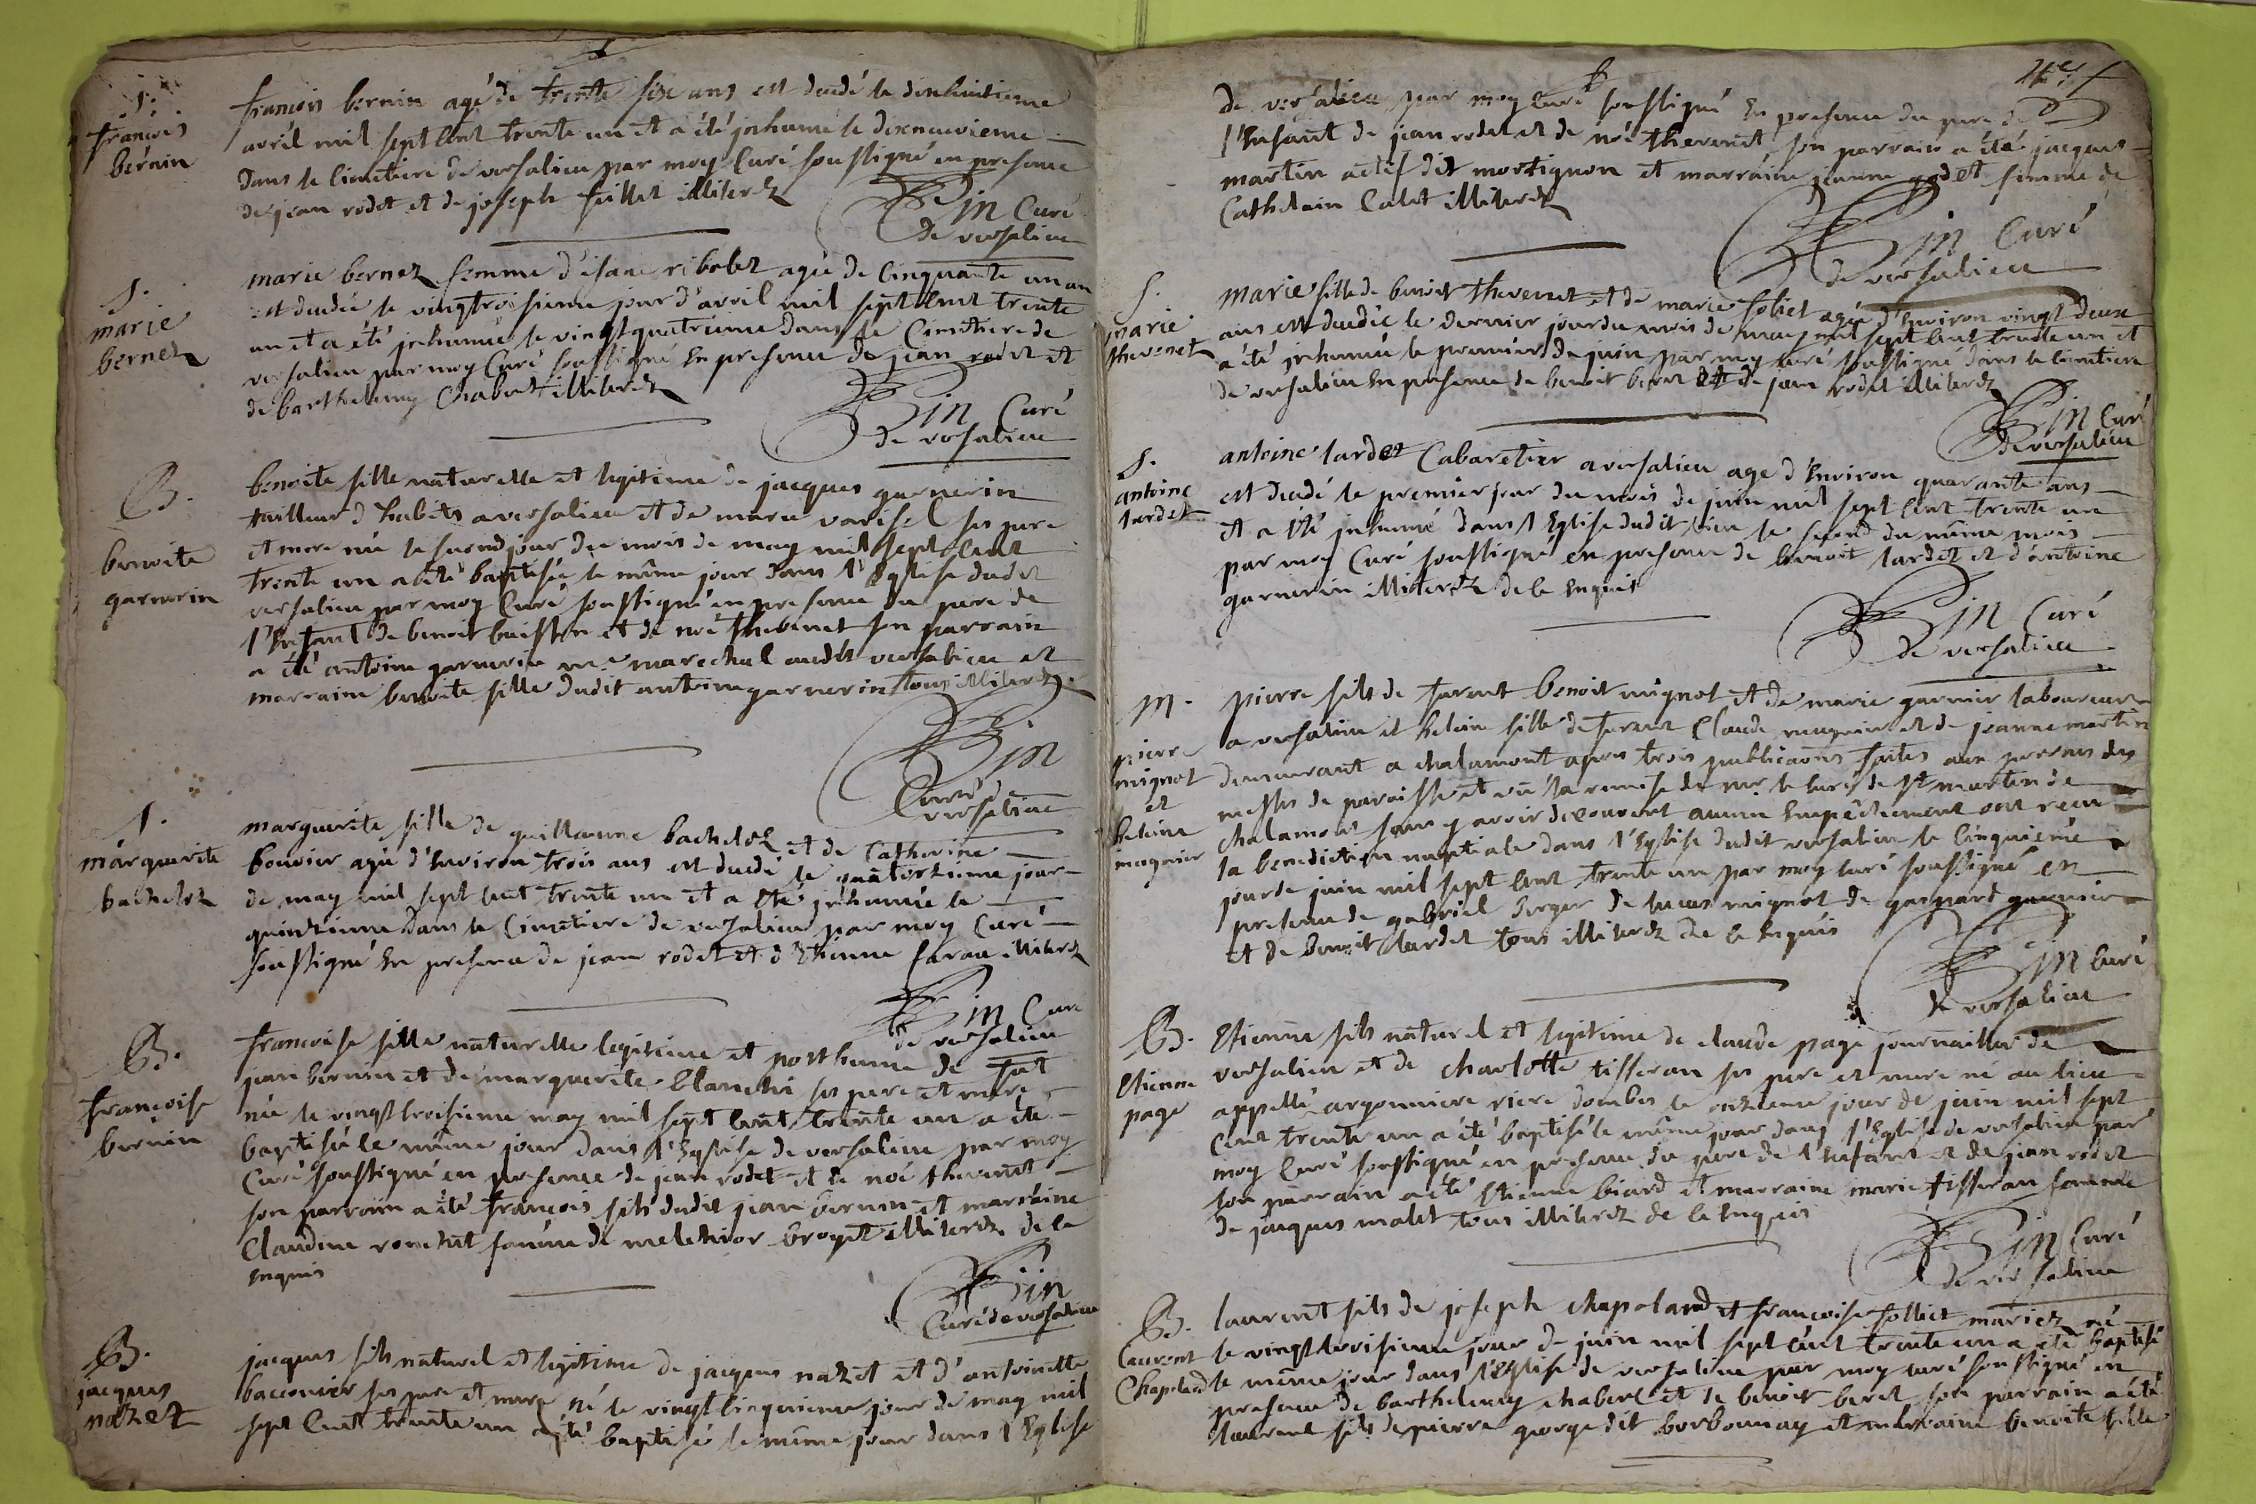 S.
françois
bernin
françois bernin agé de trente six ans est decedé le dixhuitieme
avril mil sept cent trente un et a été jnhumé le dixneuvieme
dans le cimetiere de versalieu par moy curé soussigné en presence
de jean rodet et de joseph illiterez
curé
de versalieu
S.
marie
bernez
marie bernez femme d'isaac ribolet agée de cinquante un an
est decedée le vingttroisieme jour d'avril mil sept cent trente
un et a été jnhumée le vingtquatrieme dans le cimetiere de
versalieu par moy curé soussigné En presence de jean rodet et
de barthelemy Chabert illiterez
curé
de versalieu
B.
benoite
garnerin
benoite fille naturelle et legitime de jacques garnerin
tailleur d'habits a versalieu et de marie varisel ses pere
et mere née le second jour du mois de may mil sept cent
trente un a été baptisée le même jour dans l'Eglise dudit
versalieu par moy curé soussigné en presence du pere de
l'Enfant de benoit buisson et de noé thevenet son parrain
a été antoine garnerin marechal audit versalieu et
marraine benoite fille dudit antoine garnerin tous illiterez
curé de
versalieu
S.
marguerite
bachelot
marguerite fille de guillaume bachelot et de Catherine
bouvier agée d'Environ trois ans est decedé le quatorzieme jour
de may mil sept cent trente un et a été jnhumée le
quinzieme dans le cimetiere de versalieu par moy curé
soussigné En presence de jean rodet et d'Etienne farau illiterez
curé
de versalieu
B.
françoise
bernin
françoise fille naturelle legitime et posthume de fut
jean bernin et de marguerite blanchi ses pere et mere
née le vingttroisieme may mil sept cent trente un a été
baptisée le même jour dans l'Eglise de versalieu par moy
Curé soussigné en presence de jean rodet et de noé thevenet
son parrain a été françois fils dudit jean bernin et marraine
Claudine ronchet femme de melchior broyet illiterez de ce
enquis
Curé de versalieu
B.
jacques
nazet
jacques fils naturel et legitime de jacques nazet et d'antoinette
bacconier ses pere et mere né le vingtcinquieme jour de may mil
sept cent trente un a été baptisé le même jour dans l'Eglise
de versalieu par moy curé soussigné En presence du pere de
l'Enfant de jean rodet et de noé thevenet son parrain a été jacques
martin dit mortignon et marraine jeanne godet femme de
Cathelain Calet illiterez
curé
de versalieu
S.
marie
thevenet
marie fille de benoit thevenet et de marie soliet agée d'Environ vingt deux
ans est decedée le dernier jour du mois de may mil sept cent trente un et
a été jnhumée le premier de juin par moy curé soussigné dans le cimetiere
de versalieu En presence de benoit beret et de jean rodet illiterez
curé
de versalieu
S.
antoine
tardet
antoine tardet Cabaretier a versalieu agé d'Environ quarante ans
est decedé le premier jour du mois de juin mil sept cent trente un
et a été jnhumé dans l'Eglise dudit lieu le second du même mois
par moy Curé soussigné en presence de benoit tardet et d'antoine
garnerin illiterez de ce Enquis
curé
de versalieu
M.
pierre
mignot
et
heleine
mugnier
pierre fils de furent benoit mignot et de marie garnier laboureur
a versalieu et heleine fille de furent Claude mugnier et de jeanne martin
demeurant a chalamont apres trois publications faites aux prosnes des
messes de paroisse et vû la remise de mr le curé de st martin de
chalamont sans y avoir decouvert aucun Empêchement ont recu
la benediction nuptiale dans l'Eglise dudit versalieu le cinquieme
jour de juin mil sept cent trente un par moy curé soussigné en
presence de gabriel berger de lucas mignot de gaspard garnier
et de benoit tardet tous illiterez de ce Enquis
curé
de versalieu
B.
Etienne
page
Etienne fils naturel et legitime de claude page journaillier de
versalieu et de charlotte tisseran ses pere et mere né au lieu
appellé argonniere riere dombes le onzieme jour de juin mil sept
cent trente un a été baptisé le même jour dans l'Eglise de versalieu par
moy curé soussigné en presence du pere de l'Enfant et de jean rodet
son parrain a été Etienne biard et marraine marie tisseran femme
de jacques malet tous illiterez de ce Enquis
curé
de versalieu
B.
Laurent
Chapeland
laurent fils de joseph chapoland et françoise solliet mariez né
le vingttroisieme jour de juin mil sept cent trente un a été baptisé
le même jour dans l'Eglise de versalieu par moy curé soussigné en
presence de barthelemy chabert et de benoit beret son parrain a été
laurent fils de pierre george dit borbonnay et marraine benoite fille